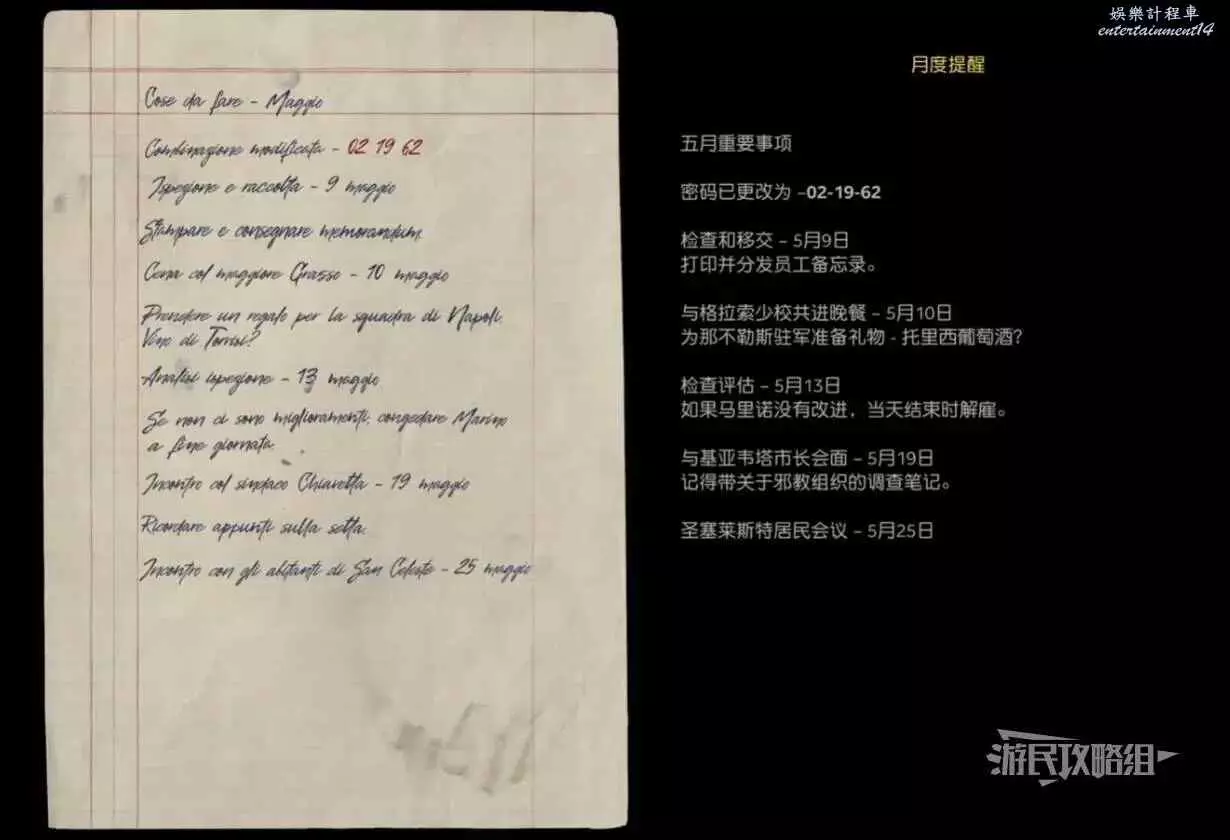 娛樂計程車
entertainment14
Cose da fare - Maggio
Combinazione modificata - 02 19 62
Ispezione e raccolta - 9 maggio
Stampare e consegnare memorandum.
Cena col maggiore Grasso - 10 maggio
Prendere un regalo per la squadra di Napoli.
Vino di Torrisi?
Analisi ispezione - 13 maggio
Se non ci sono miglioramenti, congedare Marino
a fine giornata.
Incontro col sindaco Chiavetta - 19 maggio
Ricordare appunti sulla setta.
Incontro con gli abitanti di San Celeste - 25 maggio
月度提醒
五月重要事项
密码已更改为 –02-19-62
检查和移交 – 5月9日
打印并分发员工备忘录。
与格拉索少校共进晚餐 – 5月10日
为那不勒斯驻军准备礼物 - 托里西葡萄酒？
检查评估 – 5月13日
如果马里诺没有改进，当天结束时解雇。
与基亚韦塔市长会面 – 5月19日
记得带关于邪教组织的调查笔记。
圣塞莱斯特居民会议 – 5月25日
游民攻略组